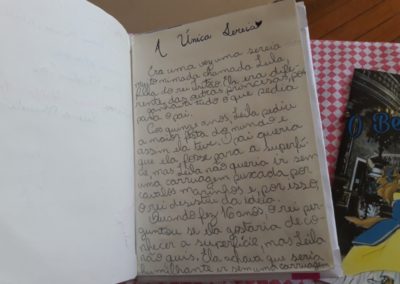 A Única Sereia
Era uma vez uma sereia
muito mimada chamada Leila,
filha do rei tritão. Ela era dife-
rente das outras princesas, por
ganhava tudo o que pedia
para o pai.
Aos quinze anos, Leila pediu
a maior festa do mundo e
assim ela teve. O pai queria
que ela fosse para a superfí-
cie, mas Leila não queria ir sem
uma carruagem puxada por
cavalos marinhos e, por isso,
o rei desistiu da ideia.
Quando fez 16 anos, o rei per-
guntou se ela gostaria de co-
nhecer a superfície, mas Leila
não quis. Ela achava que seria
humilhante ir sem uma carruagem
O Be